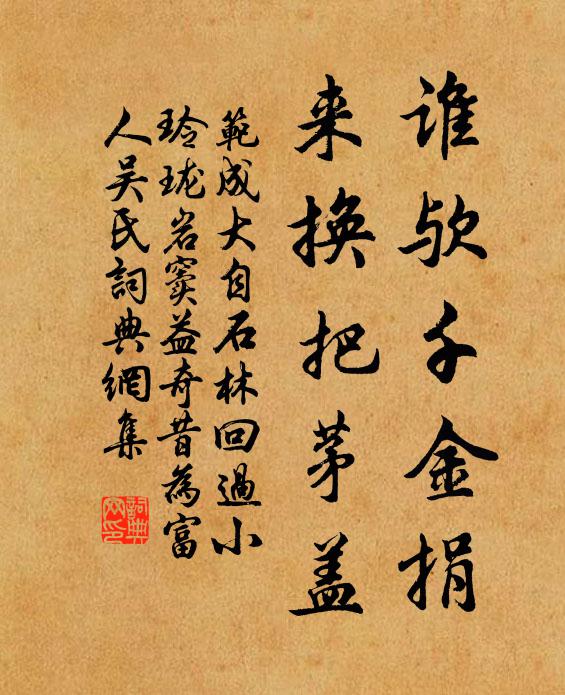 谁欤千金捐
来换把茅盖
範成大自石林回過小
玲珑岩窦益奇昔為富
人吴氏詞典網集
詞典
网印